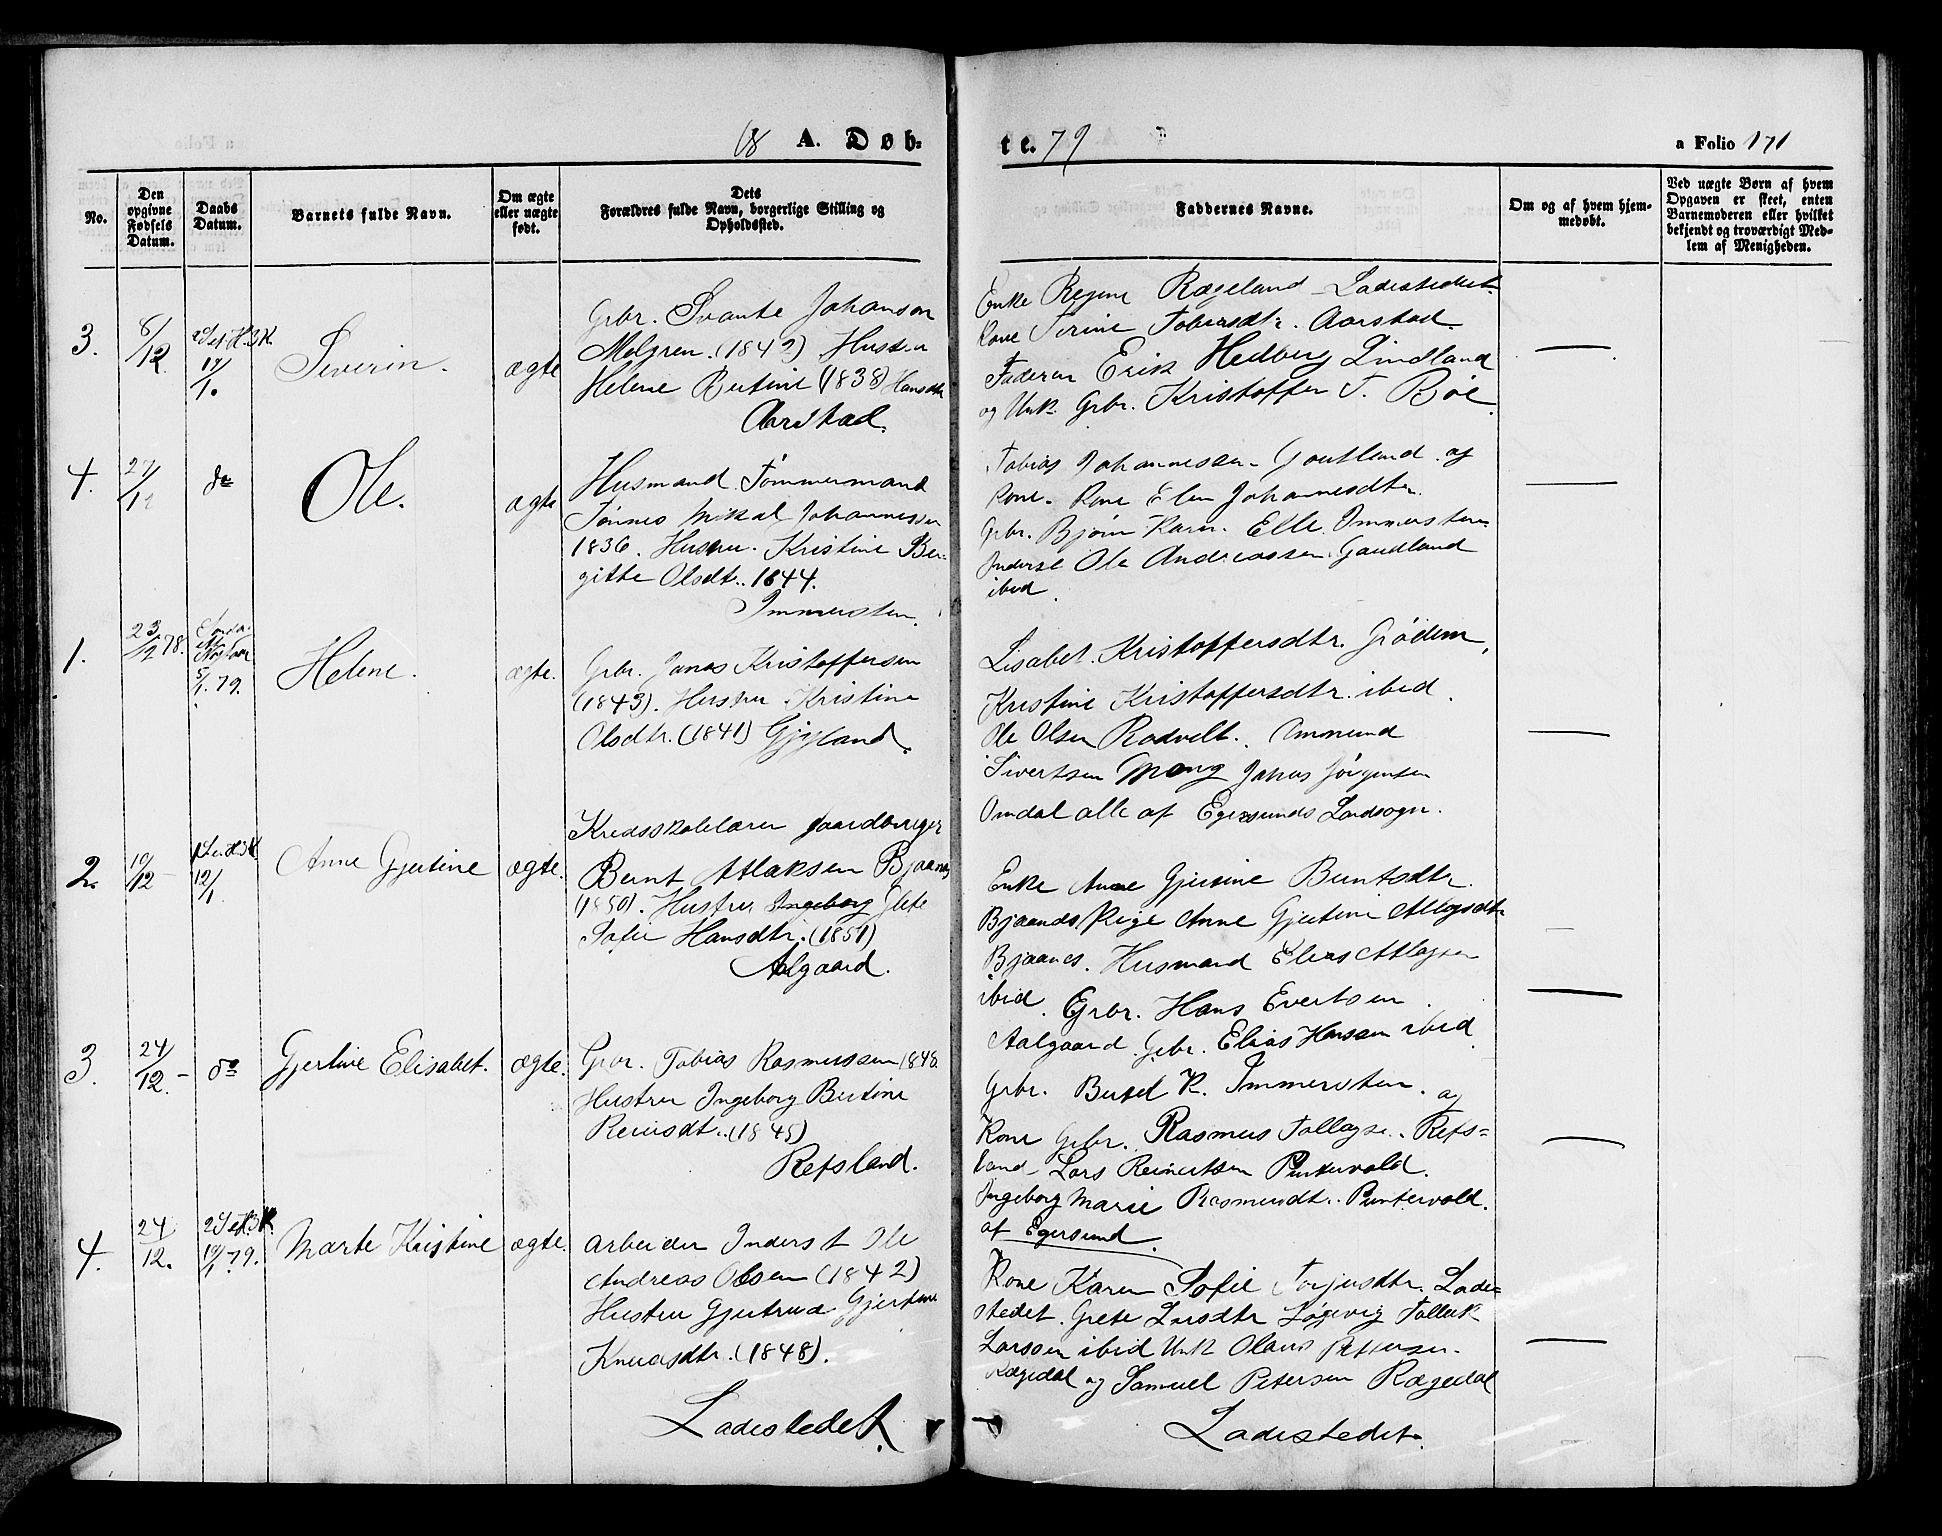 18 A. Døb-
te. 79
a Folio 171
No.
Den opgivne Fødsels Datum.
Daabs Datum.
Barnets fulde Navn.
Om ægte eller uægte født.
Dets Forældres fulde Navn, borgerlige Stilling og Opholdssted.
Faddernes Navne.
Om og af hvem hjemmedøbt.
Ved uægte Børn af hvem Opgaven er skeet, enten Barnemoderen eller hvilket bekjendt og troværdigt Medlem af Menigheden.
3.
6/12
Severin.
ægte
Grbr. Svante Johanson
Melgren. (1842) Hustru
Helene Bertine (1838) Hansdtr
Aarstad.
Enke Regine Rægeland Ladestedet.
Kone Serine Tobiasdtr. Aarstad.
Faderen Erik Hedberg Lindland
og Unk. Grbr. Kristoffer T. Böe.
4.
27/12
do
Ole.
ægte
Husmand Tömmermand
Tönnes Mikal Johannessen
1836. Hustru. Kristine Ber-
gitte Olsdt. 1844.
Immersten.
Tobias Johannessen Goutland og
Kone. Kone Elen Johannesdtr.
Grbr. Björn Karn. Elle Immersten
Inderst Ole Andreassen Gaudland
ibid.
1.
23/12 78.
5/1. 79.
Helene.
ægte.
Grbr. Jonas Kristoffersen
(1843). Hustru Kristine
Olsdtr. (1841) Gjyland.
Lisabet Kristoffersdtr. Grödem,
Kristine Kristoffersdtr. ibid.
Ole Olsen Rodvelt. Ommund
Sivertsen Mong Jonas Jörgensen
Omdal alle af Egersunds Landsogn.
2.
10/12
12/1
Anne Gjertine
ægte.
Kredsskolelærer Gaardbruger
Bernt Atlaksen Bjaanes
(1850). Hustru Ingeborg Jlete
Sofie Hansdtr. (1851)
Aalgaard.
Enke Anne Gjersine Berntsdtr.
Bjaanes. Pige Anne Gjertine Atlagsdtr
Bjaanes. Husmand Elias Atlagsen
ibid. Grbr. Hans Evertsen
Aalgaard. Grbr. Elias Hansen ibid
3.
24/12
do
Gjertine Elisabet.
ægte.
Grbr. Tobias Rasmussen 1848.
Hustru Ingeborg Bertine
Reinsdt. (1845)
Refsland.
Grbr. Berted K. Immersten. og
Kone Grbr. Rasmus Tollagse. Refs=
land Lars Reinertsen Puntervold.
Ingeborg Marie Rasmusdtr. Puntervold.
af Egersund.
4.
24/12.
19/1. 79.
Marte Kristine
ægte.
Arbeider Inderst Ole
Andreas Olsen (1842)
Hustru Gjertrud Gjertine
Knudsdtr. (1848).
Ladestedet.
Kone Karen Sofie Torjusdtr. Lade=
stedet. Grete Larsdtr Løgevig Tollak
Larssen ibid Unk Olaus Petersen.
Rægedal og Samuel Petersen Rægedal
Ladestedet.